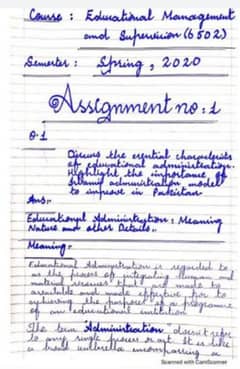 Course : Educational Management
and Supervision (6502)
Semester : Spring, 2020
Assignment no : 1
Q.1
Discuss the essential characteristics
of educational administration.
Highlight the importance of
Islamic administration model
to improve in Pakistan.
Ans:-
Educational Administration : Meaning
Nature and other Details :-
Meaning :-
Educational Administration is regarded to
as the process of integrating human and
material resources that are made to
available and made effective for to
achieving the purposes of a programme
of an educational institution.
The term Administration doesn't refer
to any single process or act. It is like
a broad umbrella encompassing a
Scanned with CamScanner